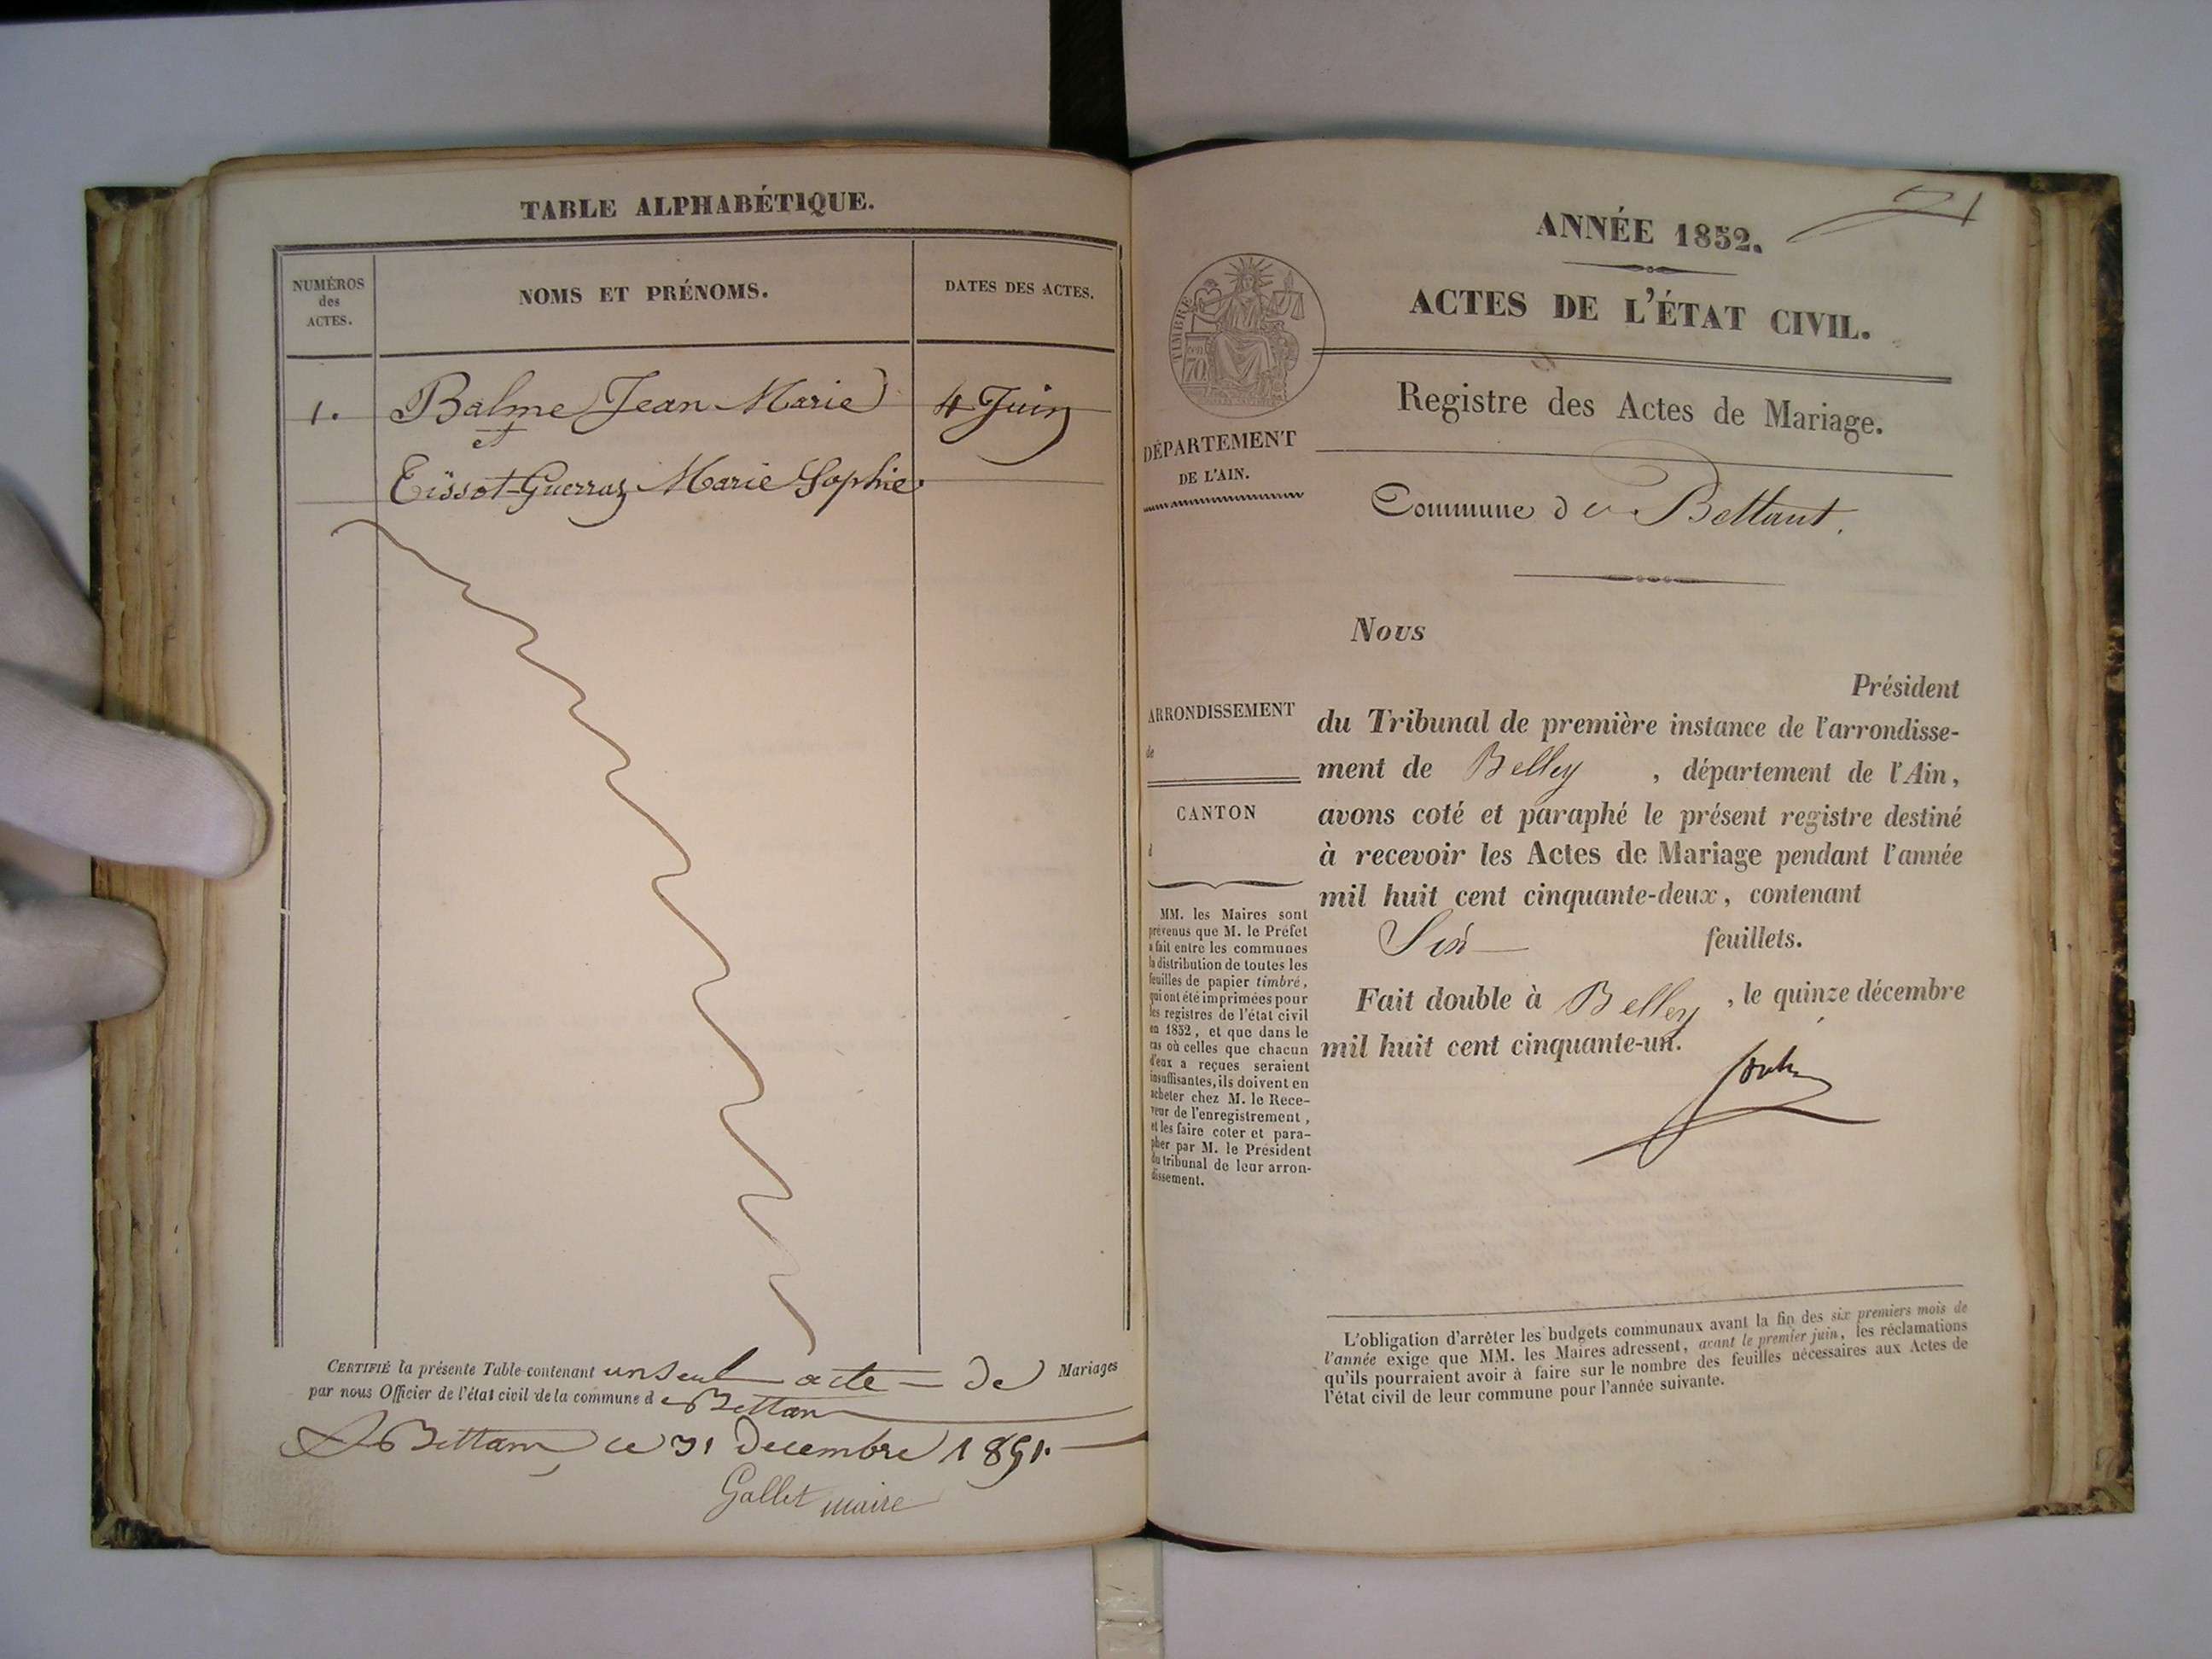 TABLE ALPHABÉTIQUE.
NUMÉROS
des
ACTES.
NOMS ET PRÉNOMS.
DATES DES ACTES.
1. Balme Jean Marie 4 Juin
et
Tissot-Guerraz Marie Sophie
CERTIFIÉ la présente Table contenant un seul acte de Mariages
par nous Officier de l'état civil de la commune de Bettan
A Bettan, le 31 Decembre 1851.
Gallet maire
ANNÉE 1852.
ACTES DE L'ÉTAT CIVIL.
TIMBRE
70
Registre des Actes de Mariage.
DÉPARTEMENT
DE L'AIN.
Commune de Bettant.
Nous
Président
ARRONDISSEMENT
de
CANTON
d
du Tribunal de première instance de l'arrondisse-
ment de Belley, département de l'Ain,
avons coté et paraphé le présent registre destiné
à recevoir les Actes de Mariage pendant l'année
mil huit cent cinquante-deux, contenant
Six feuillets.
Fait double à Belley, le quinze décembre
mil huit cent cinquante-un.
MM. les Maires sont
prévenus que M. le Préfet
a fait entre les communes
la distribution de toutes les
feuilles de papier timbré,
qui ont été imprimées pour
les registres de l'état civil
en 1852, et que dans le
cas où celles que chacun
d'eux a reçues seraient
insuffisantes, ils doivent en
acheter chez M. le Rece-
veur de l'enregistrement,
et les faire coter et para-
pher par M. le Président
du tribunal de leur arron-
dissement.
L'obligation d'arrêter les budgets communaux avant la fin des six premiers mois de
l'année exige que MM. les Maires adressent, avant le premier juin, les réclamations
qu'ils pourraient avoir à faire sur le nombre des feuilles nécessaires aux Actes de
l'état civil de leur commune pour l'année suivante.